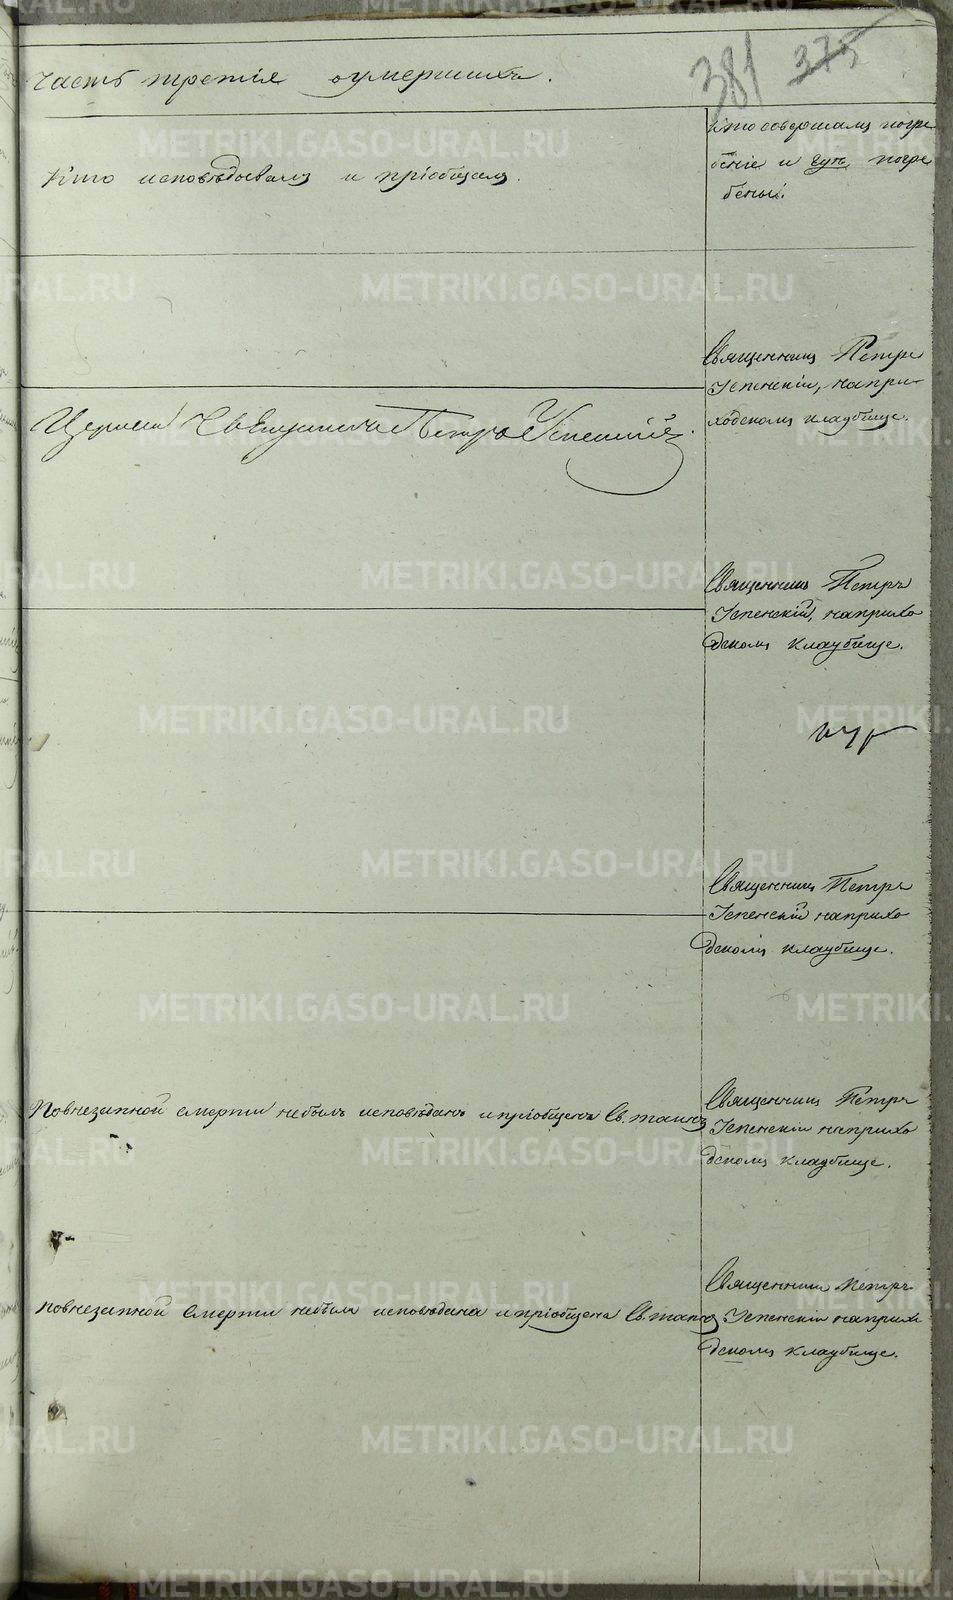 часть третія оумершихъ.
381 375
Кто исповѣдовалъ и пріобщалъ.
Кто совершалъ погре
бѣніе и гдѣ погре
бены.
Священникъ Петръ
Успенскій, на при-
ходскомъ кладбище.
Церкви Священникъ Петръ Успенскій.
Священникъ Петръ
Успенскій, на прихо
дскомъ кладбище.
Священникъ Петръ
Успенскій на прихо
дскомъ кладбище.
По внезапной смерти небылъ исповѣданъ и пріобщенъ Св. таинъ
Священникъ Петръ
Успенскій на прихо
дскомъ кладбище.
по внезапной смерти небыла исповѣдана и пріобщена Св. таинъ
Священникъ Петръ
Успенскій на прихо
дскомъ кладбище.
METRIKI.GASO-URAL.RU